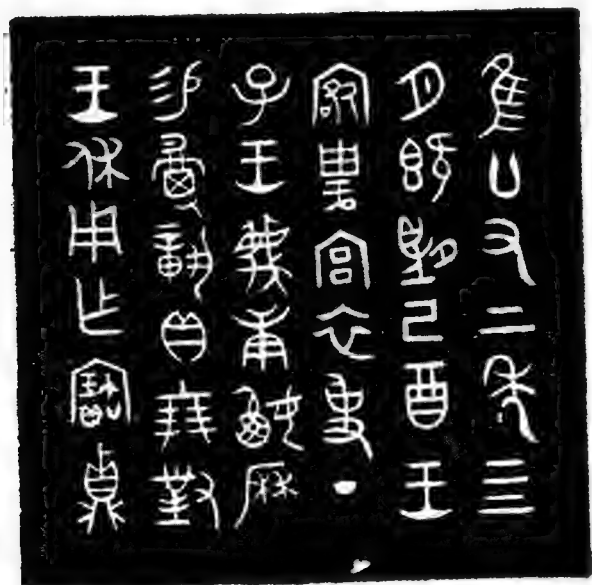 隹廿又二年三
月既望己酉王
客琱宮衣事丁
子王蔑庚嬴厤
易爵貝朋對
王休用乍寶鼎